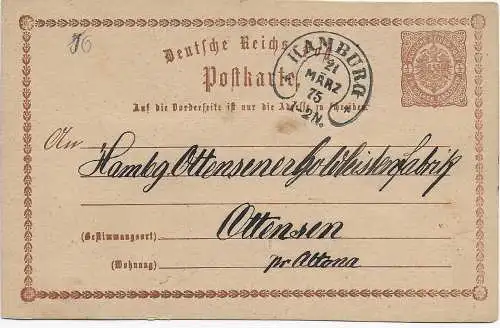 76
Deutsche Reichs
Postkarte
HAMBURG
21
MÄRZ
75
1-2N.
Auf die Vorderseite ist nur die Adresse zu schreiben.
An
Hambg Ottensener Goldleisten Fabrik
(Bestimmungsort)
Ottensen
(Wohnung)
pr Altona